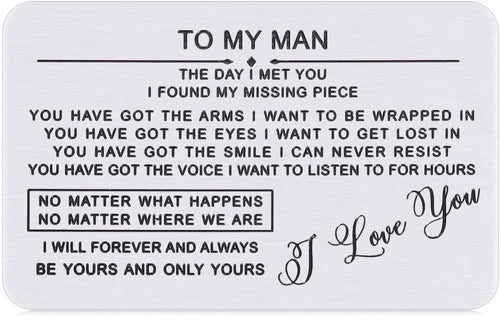 TO MY MAN
THE DAY I MET YOU
I FOUND MY MISSING PIECE
YOU HAVE GOT THE ARMS I WANT TO BE WRAPPED IN
YOU HAVE GOT THE EYES I WANT TO GET LOST IN
YOU HAVE GOT THE SMILE I CAN NEVER RESIST
YOU HAVE GOT THE VOICE I WANT TO LISTEN TO FOR HOURS
NO MATTER WHAT HAPPENS
NO MATTER WHERE WE ARE
I WILL FOREVER AND ALWAYS
BE YOURS AND ONLY YOURS
I Love You